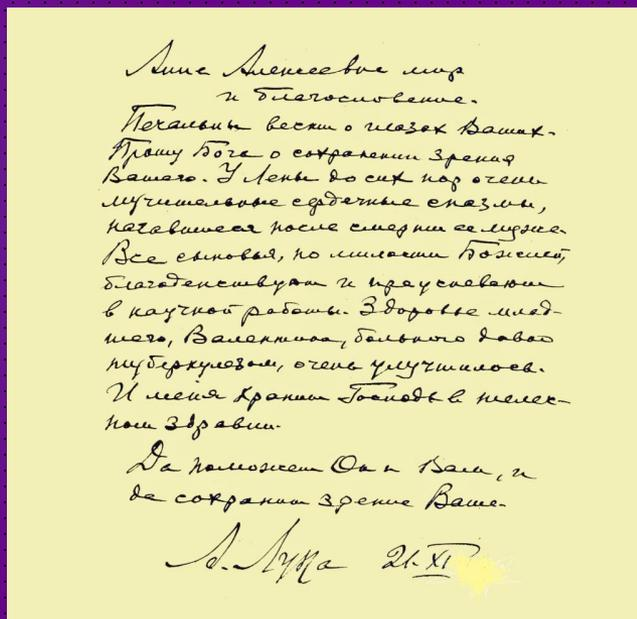 Анне Алексеевне мир
и благословение.
Печальны вести о глазах Ваших.
Прошу Бога о сохранении зрения
Вашего. У Лены до сих пор очень
мучительные сердечные спазмы,
начавшиеся после смерти ее мужа.
Все сыновья, по милости Божией,
благоденствуют и преуспевают
в научной работы. Здоровье млад-
шего, Валентина, больного давно
туберкулезом, очень улучшилось.
И меня хранит Господь в телес-
ном здравии.
Да поможет Он и Вам, и
да сохранит зрение Ваше.
А. Лука 21.XI